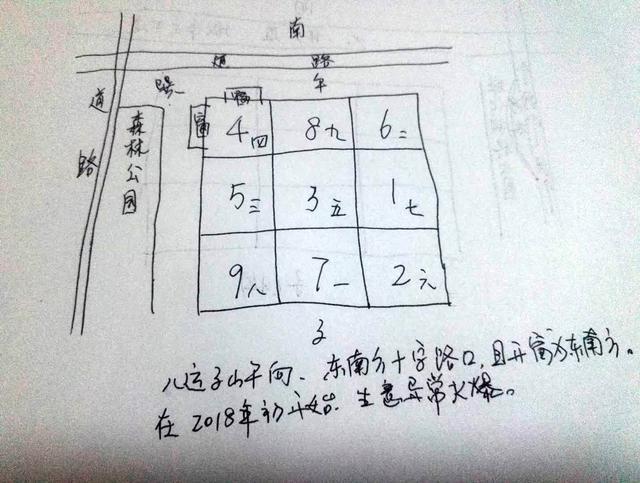 南
道 路
道路
午
窗
窗
森林公园
4四 8九 6二
5三 3五 1七
9八 7一 2六
子
八运子山午向、东南方十字路口,且开窗为东南方。
在2018年初开始.生意异常火爆。